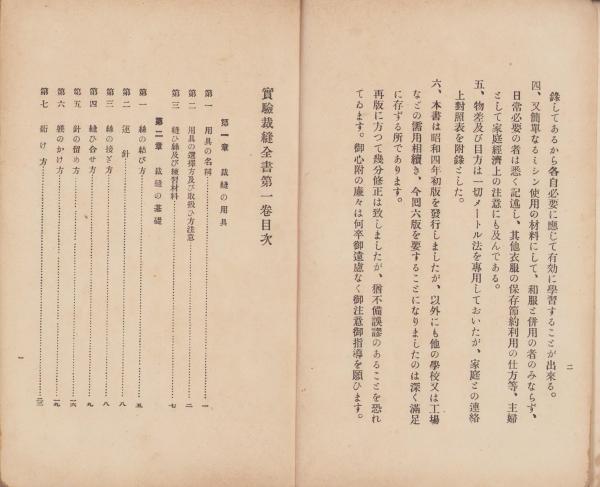 錄してあるから各自必要に應じて有効に學習することが出來る。
四、又簡單なるミシン使用の材料にして、和服と併用の者のみならず、
日常必要の者は悉く記述し、其他衣服の保存節約利用の仕方等、主婦
として家庭經濟上の注意にも及んである。
五、物差及び目方は一切メートル法を專用しておいたが、家庭との連絡
上對照表を附錄とした。
六、本書は昭和四年初版を發行しましたが、以外にも他の學校又は工場
などの需用相續き、今囘六版を要することになりましたのは深く滿足
に存ずる所であります。
再版に方つて幾分修正は致しましたが、猶不備誤謬のあることを恐れ
てゐます。御心附の廉々は何卒御遠慮なく御注意御指導を願ひます。
二
實驗裁縫全書第一卷目次
第一章 裁縫の用具
第一 用具の名稱……一
第二 用具の選擇方及び取扱ひ方注意……二
第三 縫ひ絲及び練習材料……七
第二章 裁縫の基礎
第一 絲の結び方……五
第二 運針……八
第三 絲の接ぎ方……八
第四 縫ひ合せ方……九
第五 針の留め方……一六
第六 襞のかけ方……一九
第七 絎け方……二三
一